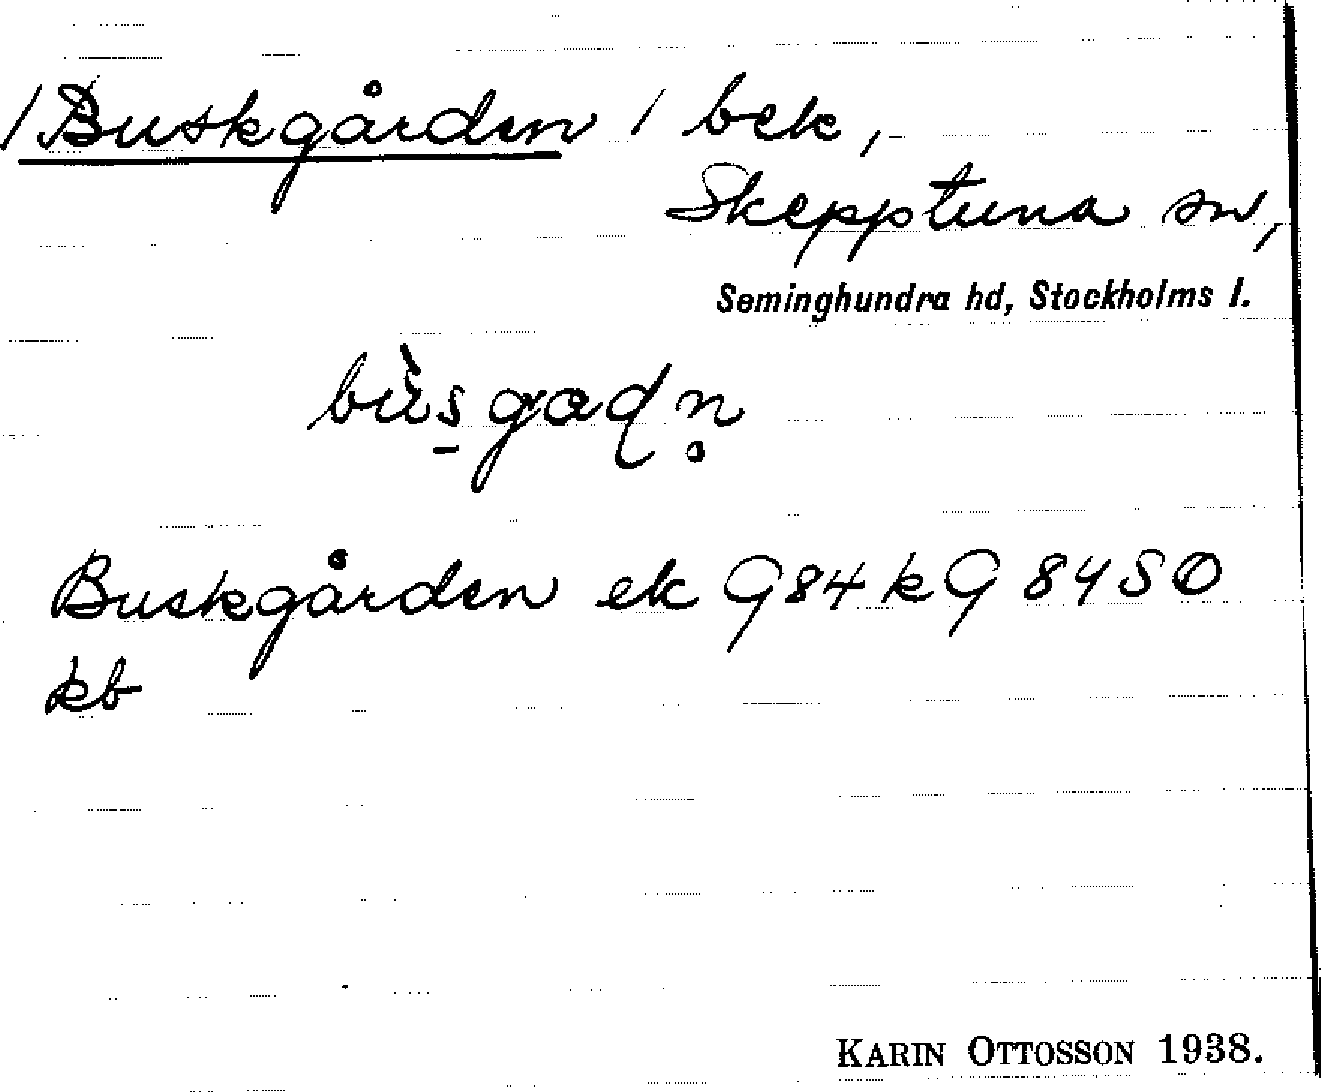 /Buskgården / bek,
Skepptuna sn,
Seminghundra hd, Stockholms l.
bùsgaḍn̥
Buskgården ek G84kG 84SO
kb
KARIN OTTOSSON 1938.